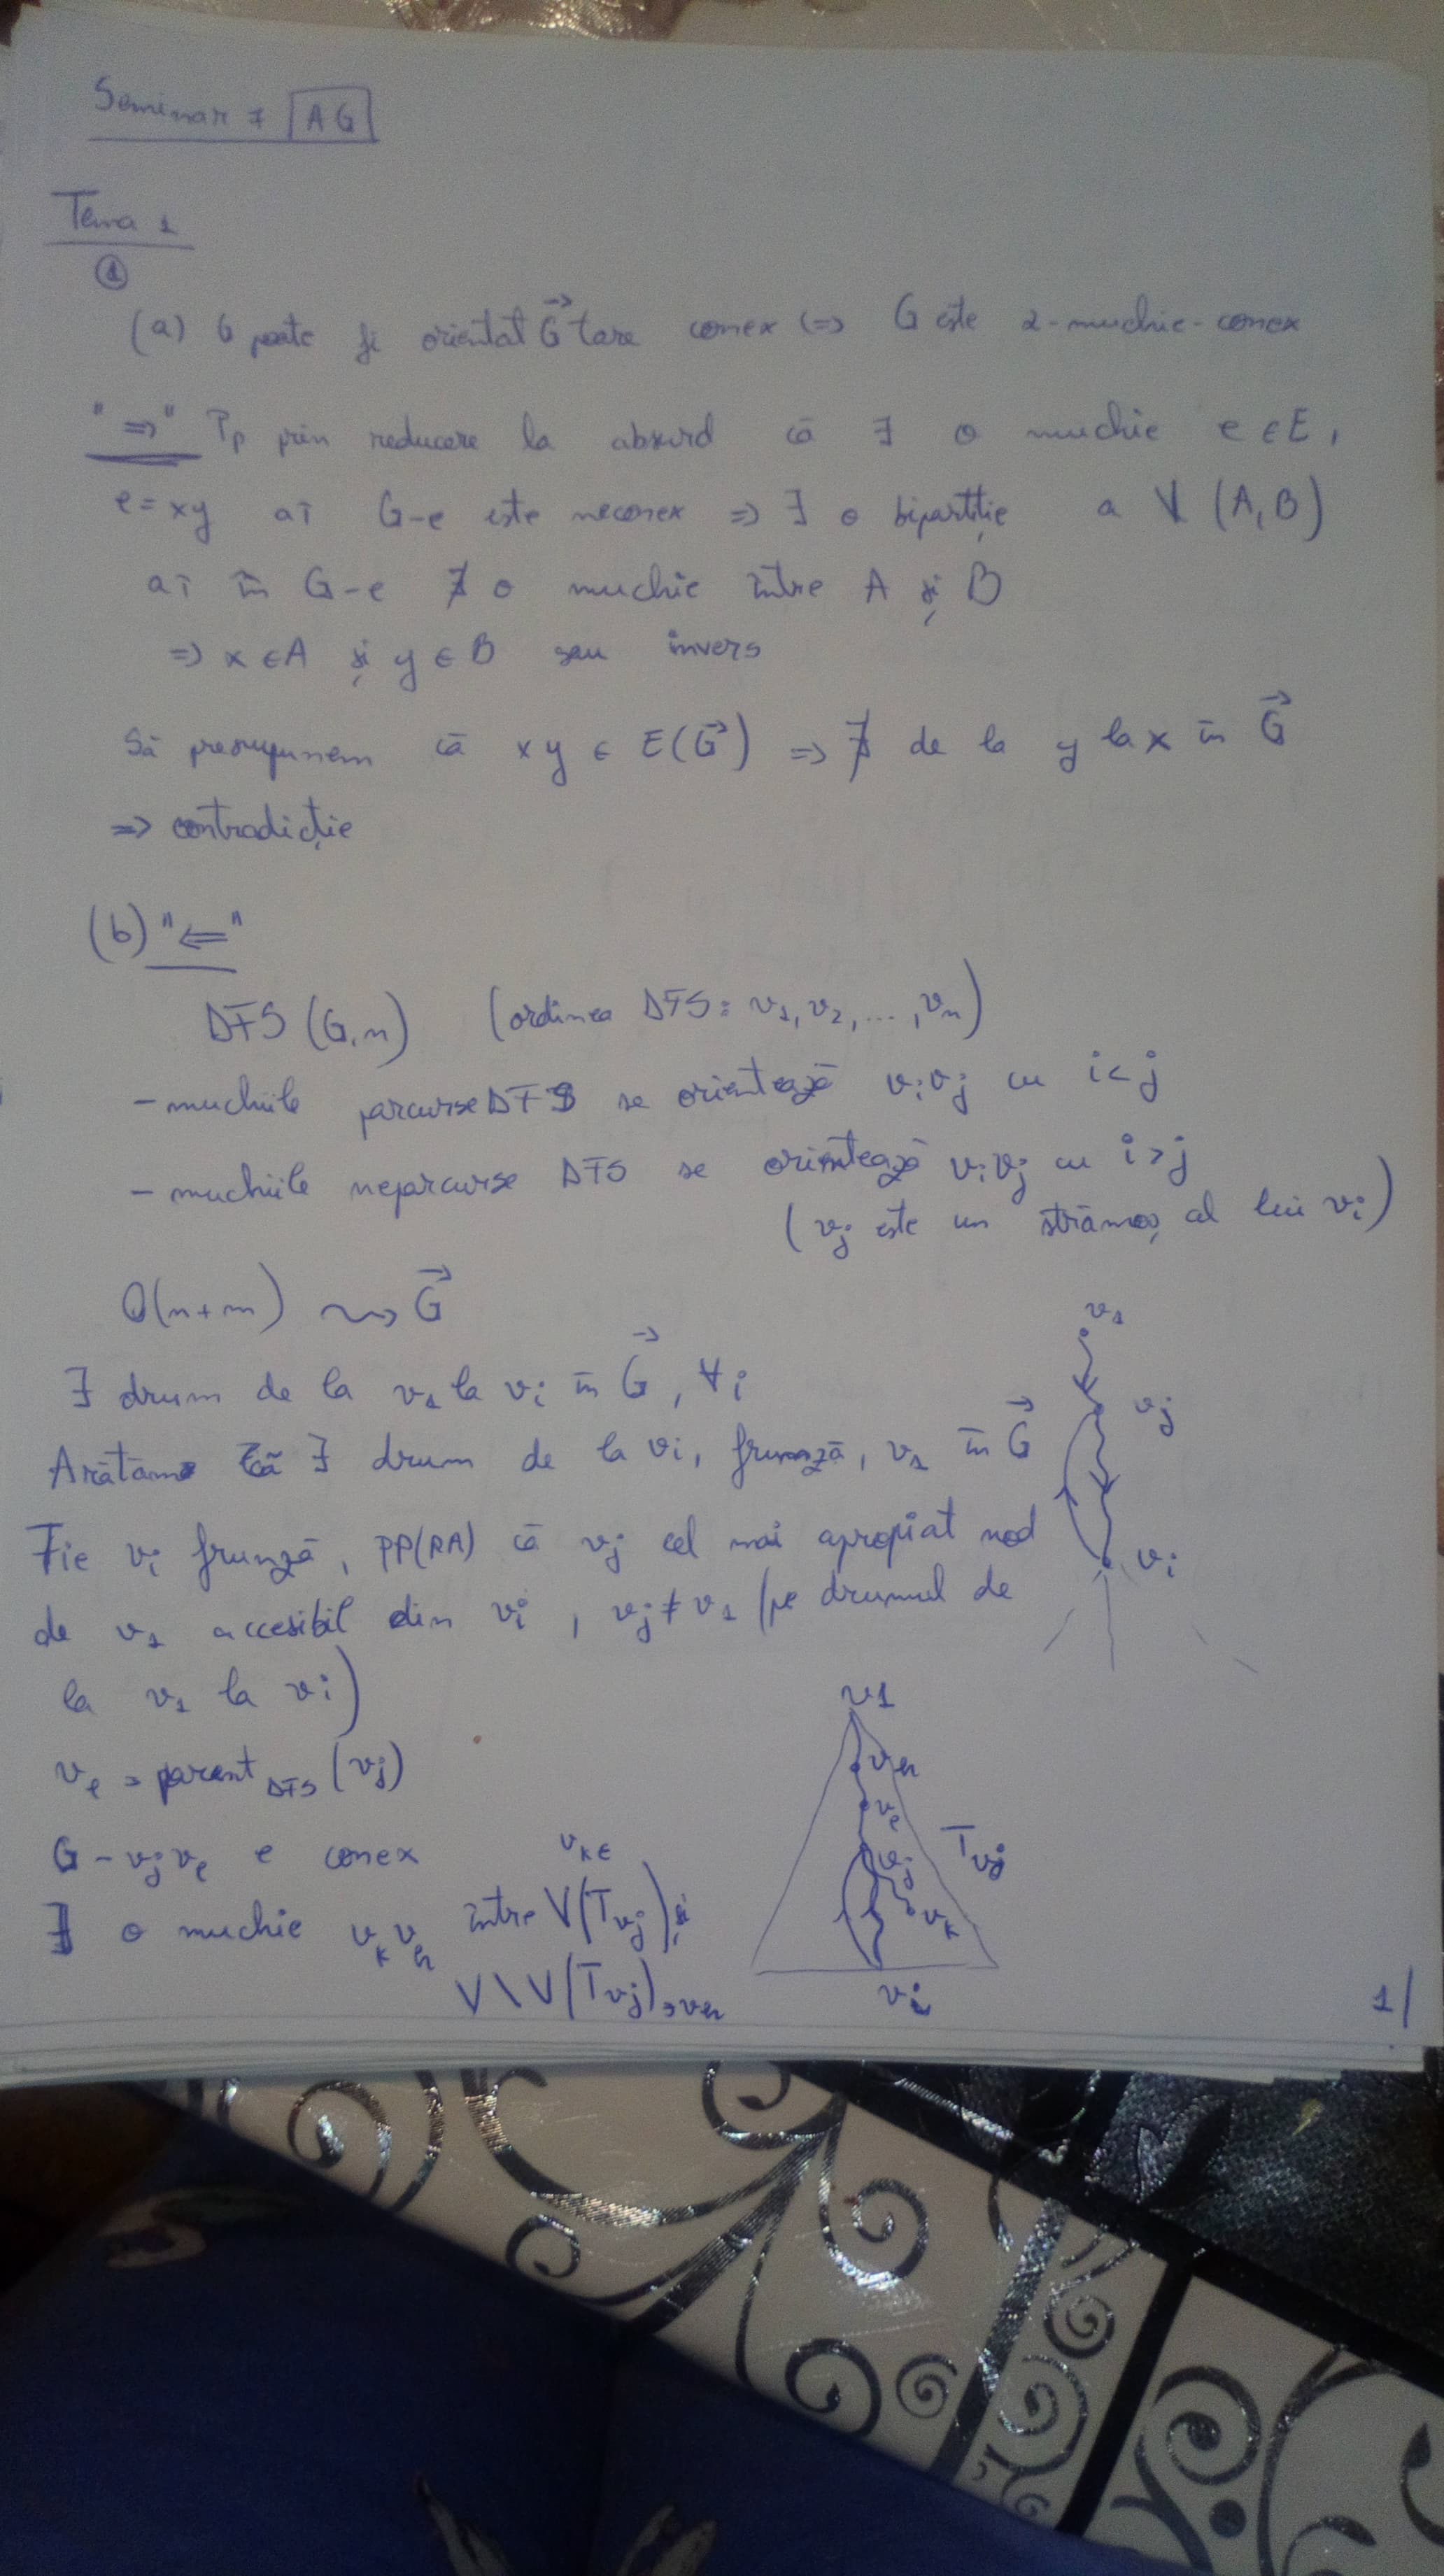 Seminar 7 AG
Tema 1
①
(a) G poate fi orientat G⃗ tare conex (=> G este 2-muchie-conex
"=>" Pp prin reducere la absurd că ∃ o muchie e ∈ E,
e = xy aî G-e este neconex => ∃ o bipartiție a V (A, B)
aî în G-e ∄ o muchie între A și B
=> x ∈ A și y ∈ B sau invers
Să presupunem că xy ∈ E(G⃗) => ∄ de la y la x în G⃗
=> contradicție
(b) "<="
DFS (G, n) (ordinea DFS: v₁, v₂, ..., vₙ)
- muchiile parcurse DFS se orientează vᵢvⱼ cu i < j
- muchiile neparcurse DFS se orientează vᵢvⱼ cu i > j
(vⱼ este un strămoș al lui vᵢ)
O(n+m) ⇝ G⃗
∃ drum de la v₁ la vᵢ în G⃗, ∀i
Arătăm că ∃ drum de la vᵢ, frunză, v₁ în G⃗
Fie vᵢ frunză, PP(RA) că vⱼ cel mai apropiat nod
de v₁ accesibil din vᵢ, vⱼ ≠ v₁ (pe drumul de
la v₁ la vᵢ)
v₁
vⱼ
vᵢ
vₑ = parent DFS (vⱼ)
G - vⱼvₑ e conex
∃ o muchie vₖvₕ între vₖ∈ V(Tvⱼ) și
V \ V(Tvⱼ)∋vₕ
v1
vₕ
vₑ
vⱼ
Tvⱼ
vₖ
vᵢ
1/